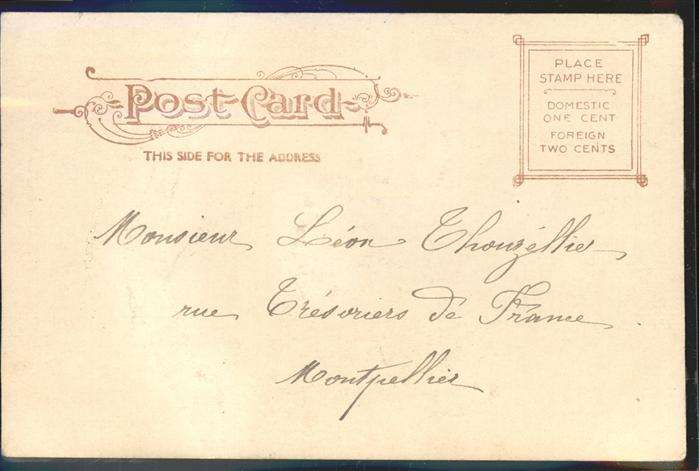 Post-Card
THIS SIDE FOR THE ADDRESS
PLACE
STAMP HERE
DOMESTIC
ONE CENT
FOREIGN
TWO CENTS
Monsieur Léon Thouzéllier
rue Trésoriers de France
Montpellier